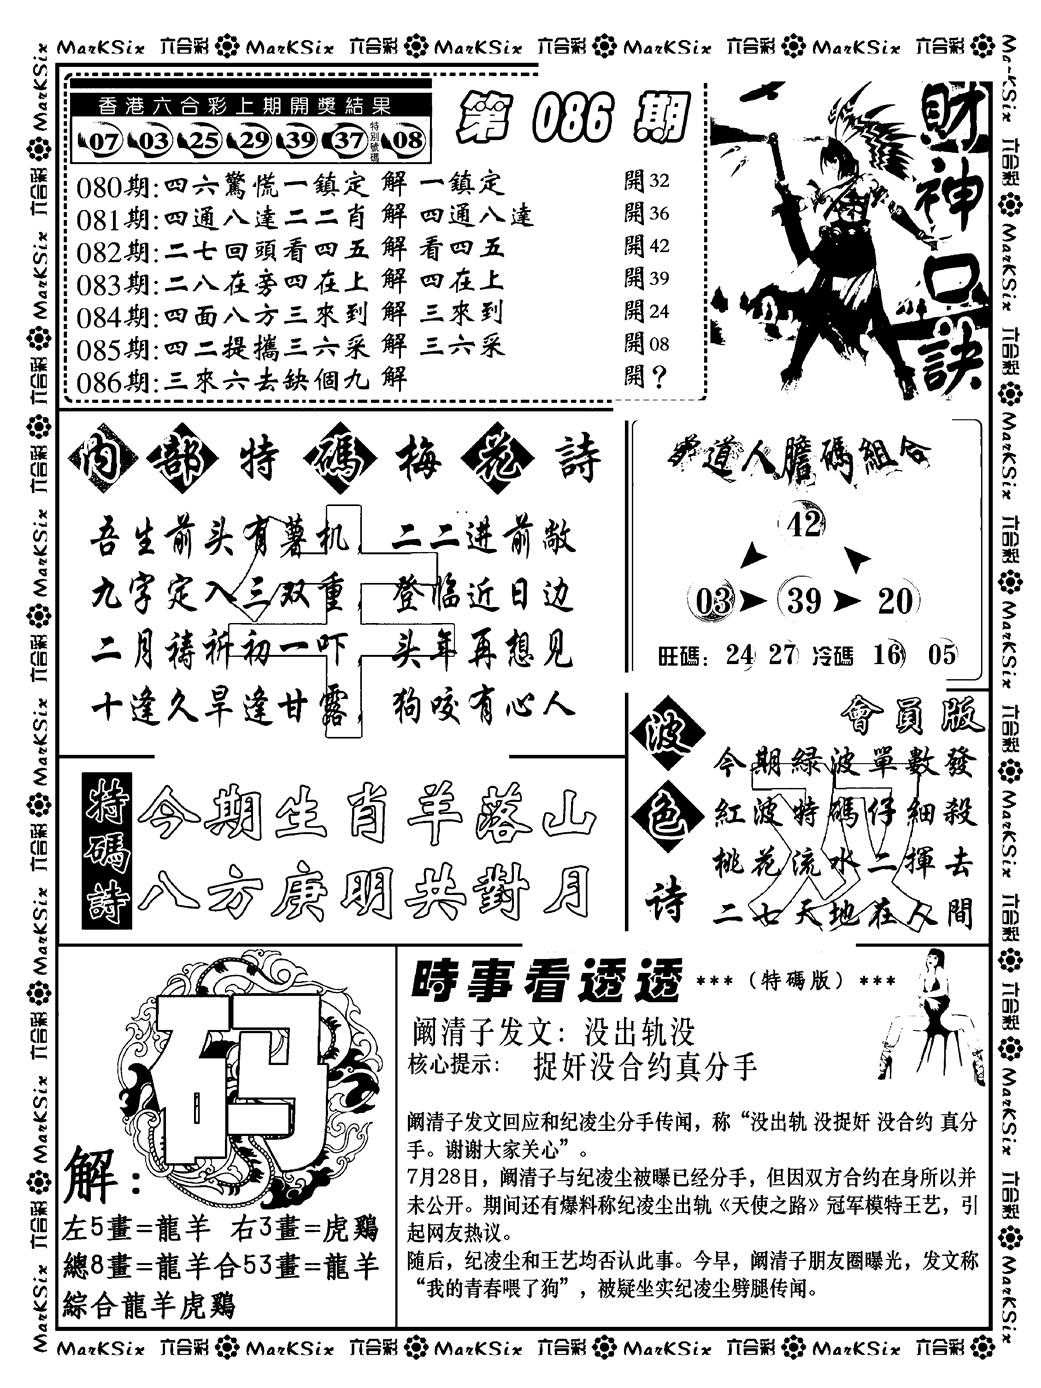 MarKSix 六合彩 MarKSix 六合彩 MarKSix 六合彩 MarKSix 六合彩 MarKSix 六合彩
香港六合彩上期開獎結果
07 03 25 29 39 37 特別號碼 08
第 086 期
080期:四六驚慌一鎮定 解 一鎮定 開32
081期:四通八達二二肖 解 四通八達 開36
082期:二七回頭看四五 解 看四五 開42
083期:二八在旁四在上 解 四在上 開39
084期:四面八方三來到 解 三來到 開24
085期:四二提攜三六采 解 三六采 開08
086期:三來六去缺個九 解 開?
財神口訣
內部特碼梅花詩
吾生前头有薯机, 二二进前敞
九字定入三双重, 登临近日边
二月祷祈初一吓, 头年再想见
十逢久旱逢甘露, 狗咬有心人
牛
曾道人膽碼組合
42
03 39 20
旺碼: 24 27 冷碼 16 05
特碼詩
今期生肖羊落山
八方庚明共對月
波色诗
會員版
今期綠波單數發
紅波特碼仔細殺
桃花流水二揮去
二七天地在人間
双
码
解:
左5畫=龍羊 右3畫=虎鷄
總8畫=龍羊合53畫=龍羊
綜合龍羊虎鷄
時事看透透 ***(特碼版)***
阚清子发文: 没出轨没
核心提示: 捉奸没合约真分手
阚清子发文回应和纪凌尘分手传闻, 称“没出轨 没捉奸 没合约 真分
手。谢谢大家关心”。
7月28日, 阚清子与纪凌尘被曝已经分手, 但因双方合约在身所以并
未公开。期间还有爆料称纪凌尘出轨《天使之路》冠军模特王艺, 引
起网友热议。
随后, 纪凌尘和王艺均否认此事。今早, 阚清子朋友圈曝光, 发文称
“我的青春喂了狗”, 被疑坐实纪凌尘劈腿传闻。
MarKSix 六合彩 MarKSix 六合彩 MarKSix 六合彩 MarKSix 六合彩 MarKSix 六合彩